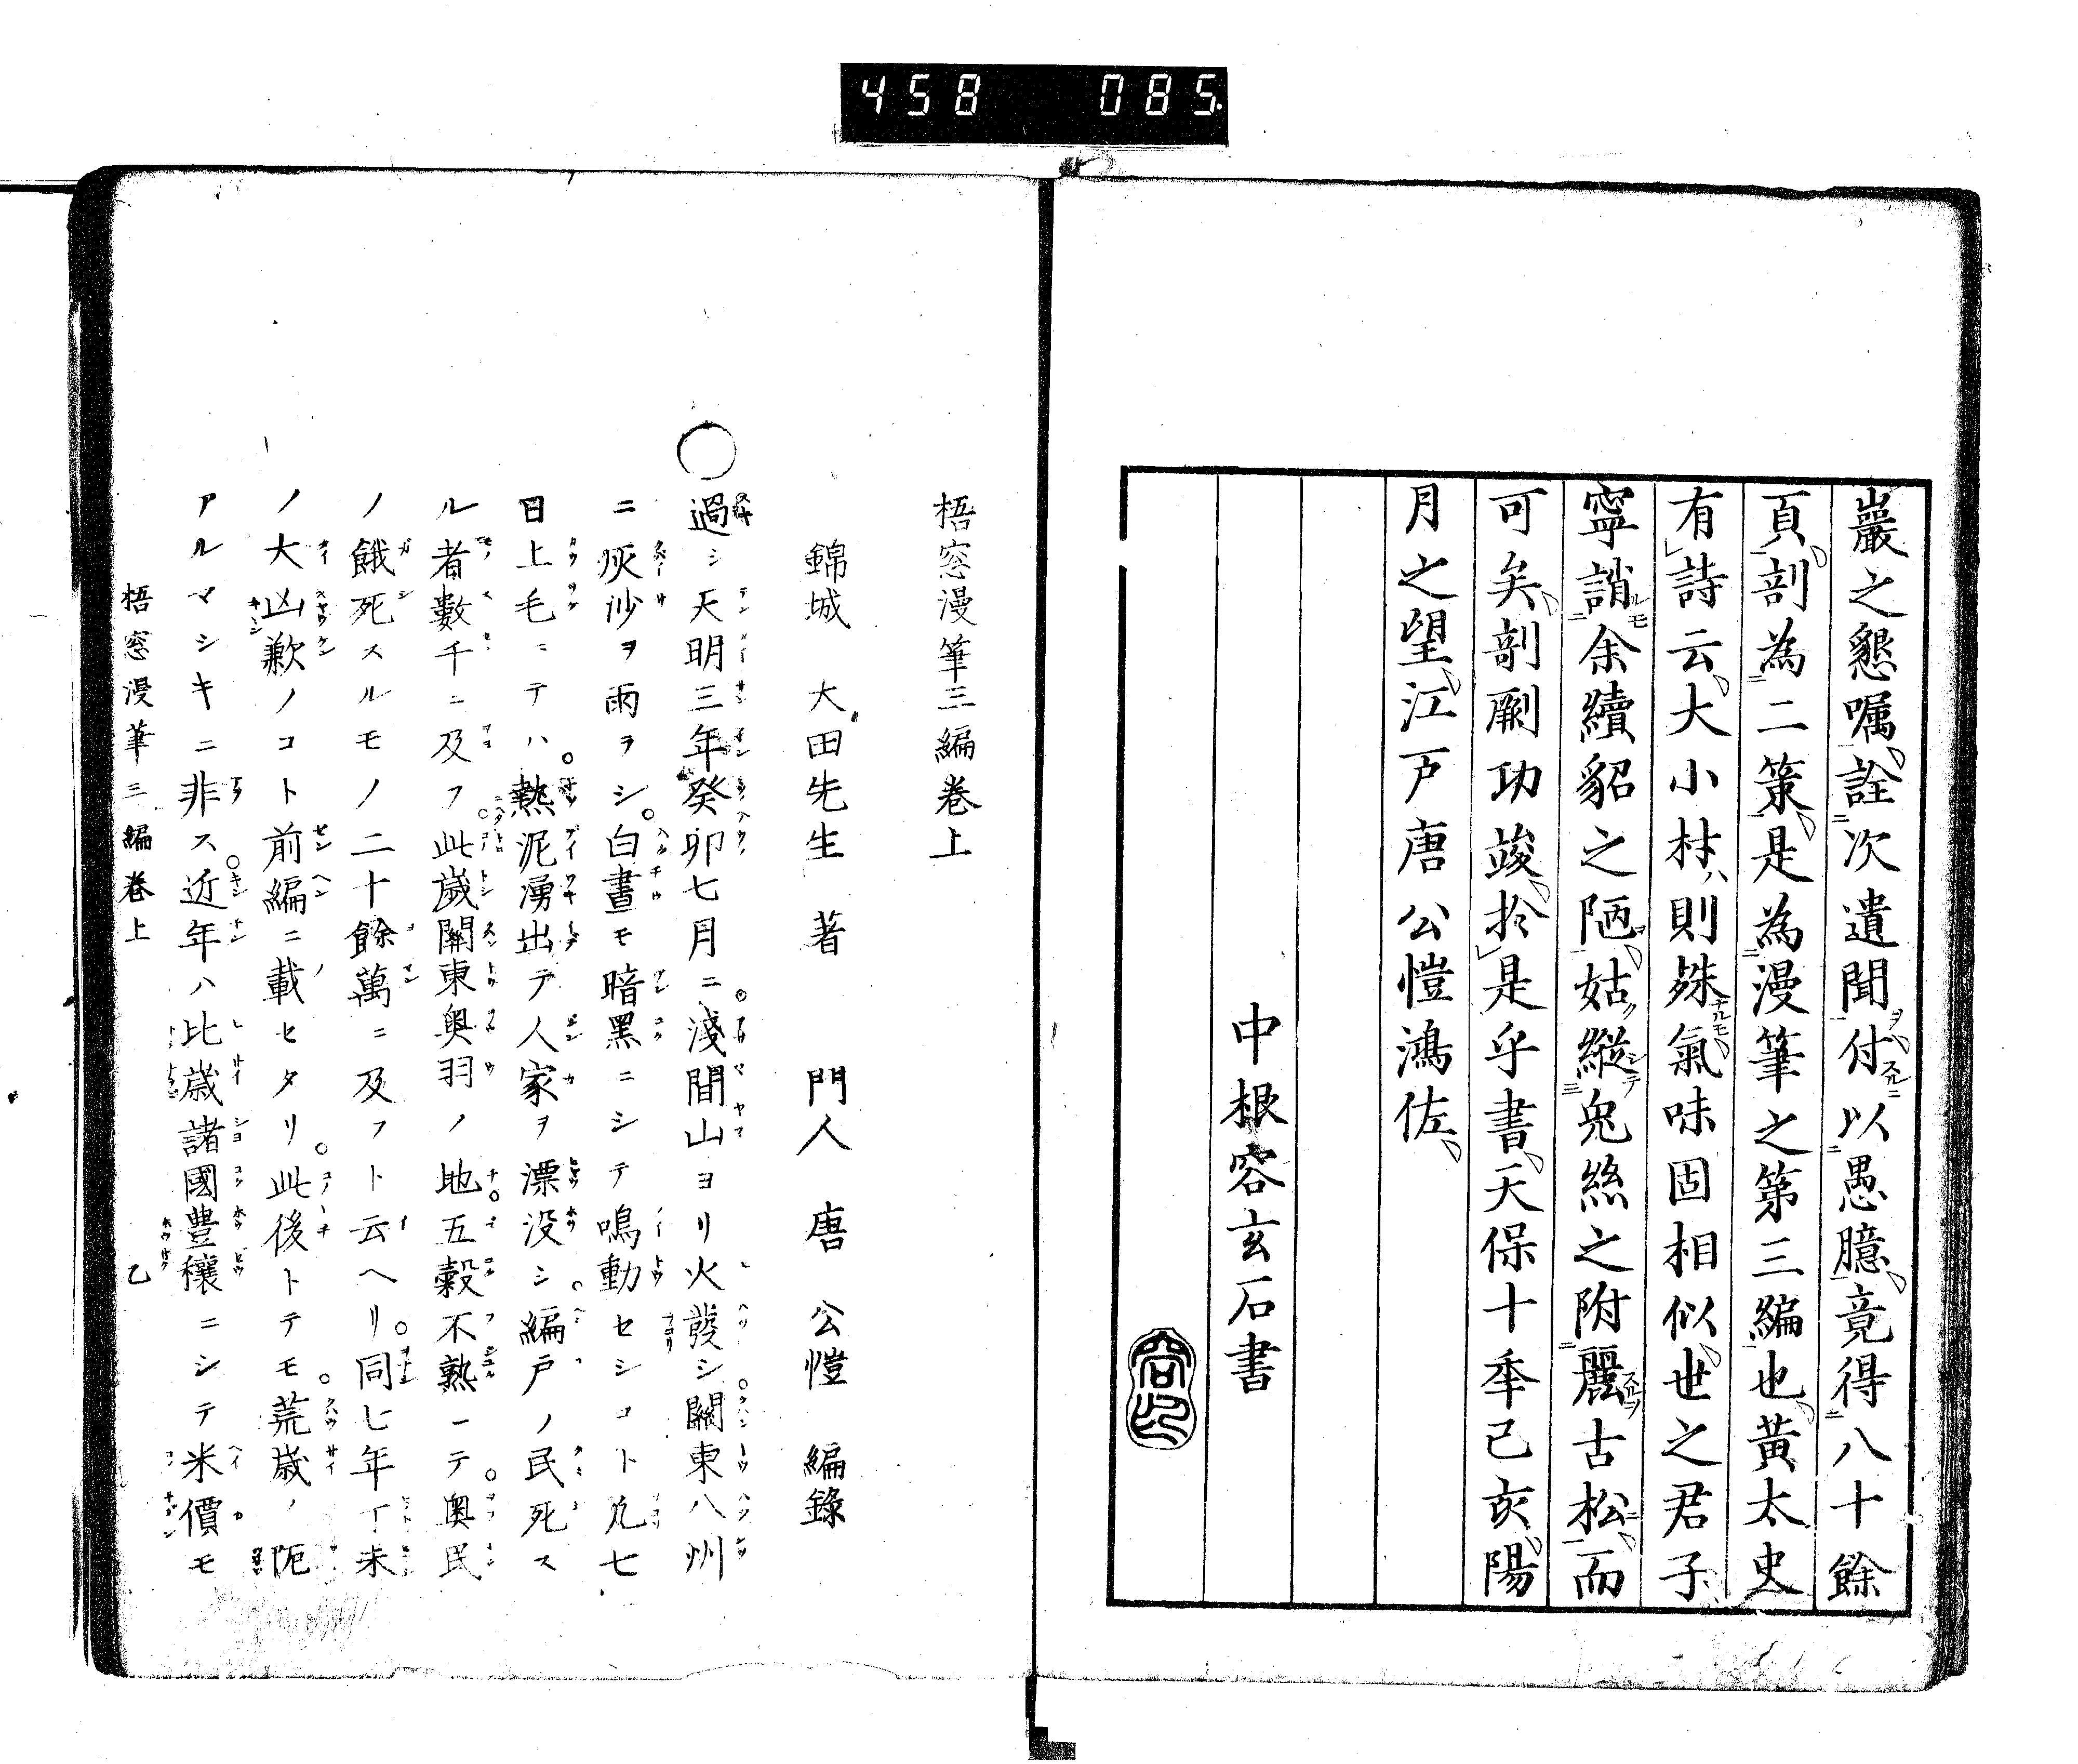 458 085.
巖之懇嘱詮次遺聞付以愚臆竟得八十餘
頁剖為二策是為漫筆之第三編也黃太史
有詩云大小材則殊氣味固相似世之君子
寧誚余續貂之陋姑縱兔絲之附麗古松而
可矣剞劂功竣於是乎書天保十季己亥陽
月之望江戸唐公愷鴻佐
中根容玄石書
梧窓漫筆三編巻上
錦城 大田先生 著 門人 唐 公愷 編録
○過シ天明三年癸卯七月ニ淺間山ヨリ火發シ關東八州
ニ灰沙ヲ雨ラシ白晝モ暗黑ニシテ鳴動セシコト凢七
日上毛ニテハ熱泥湧出テ人家ヲ漂没シ編戸ノ民死ス
ル者數千ニ及フ此歳關東奥羽ノ地五穀不熟ーテ奥民
ノ餓死スルモノ二十餘萬ニ及フト云ヘリ同七年丁未
ノ大凶歉ノコト前編ニ載セタリ此後トテモ荒歳ノ阨
アルマシキニ非ス近年ハ比歳諸國豊穰ニシテ米價モ
梧窓漫筆三編巻上 乙